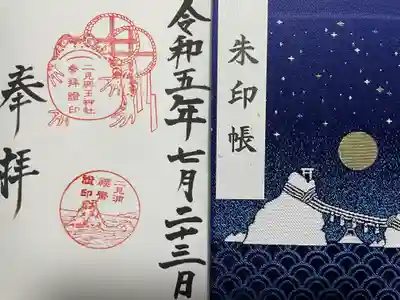 朱印帳
令和五年七月二十三日
二見興玉神社
参拝證印
二見浦
證印
奉拝